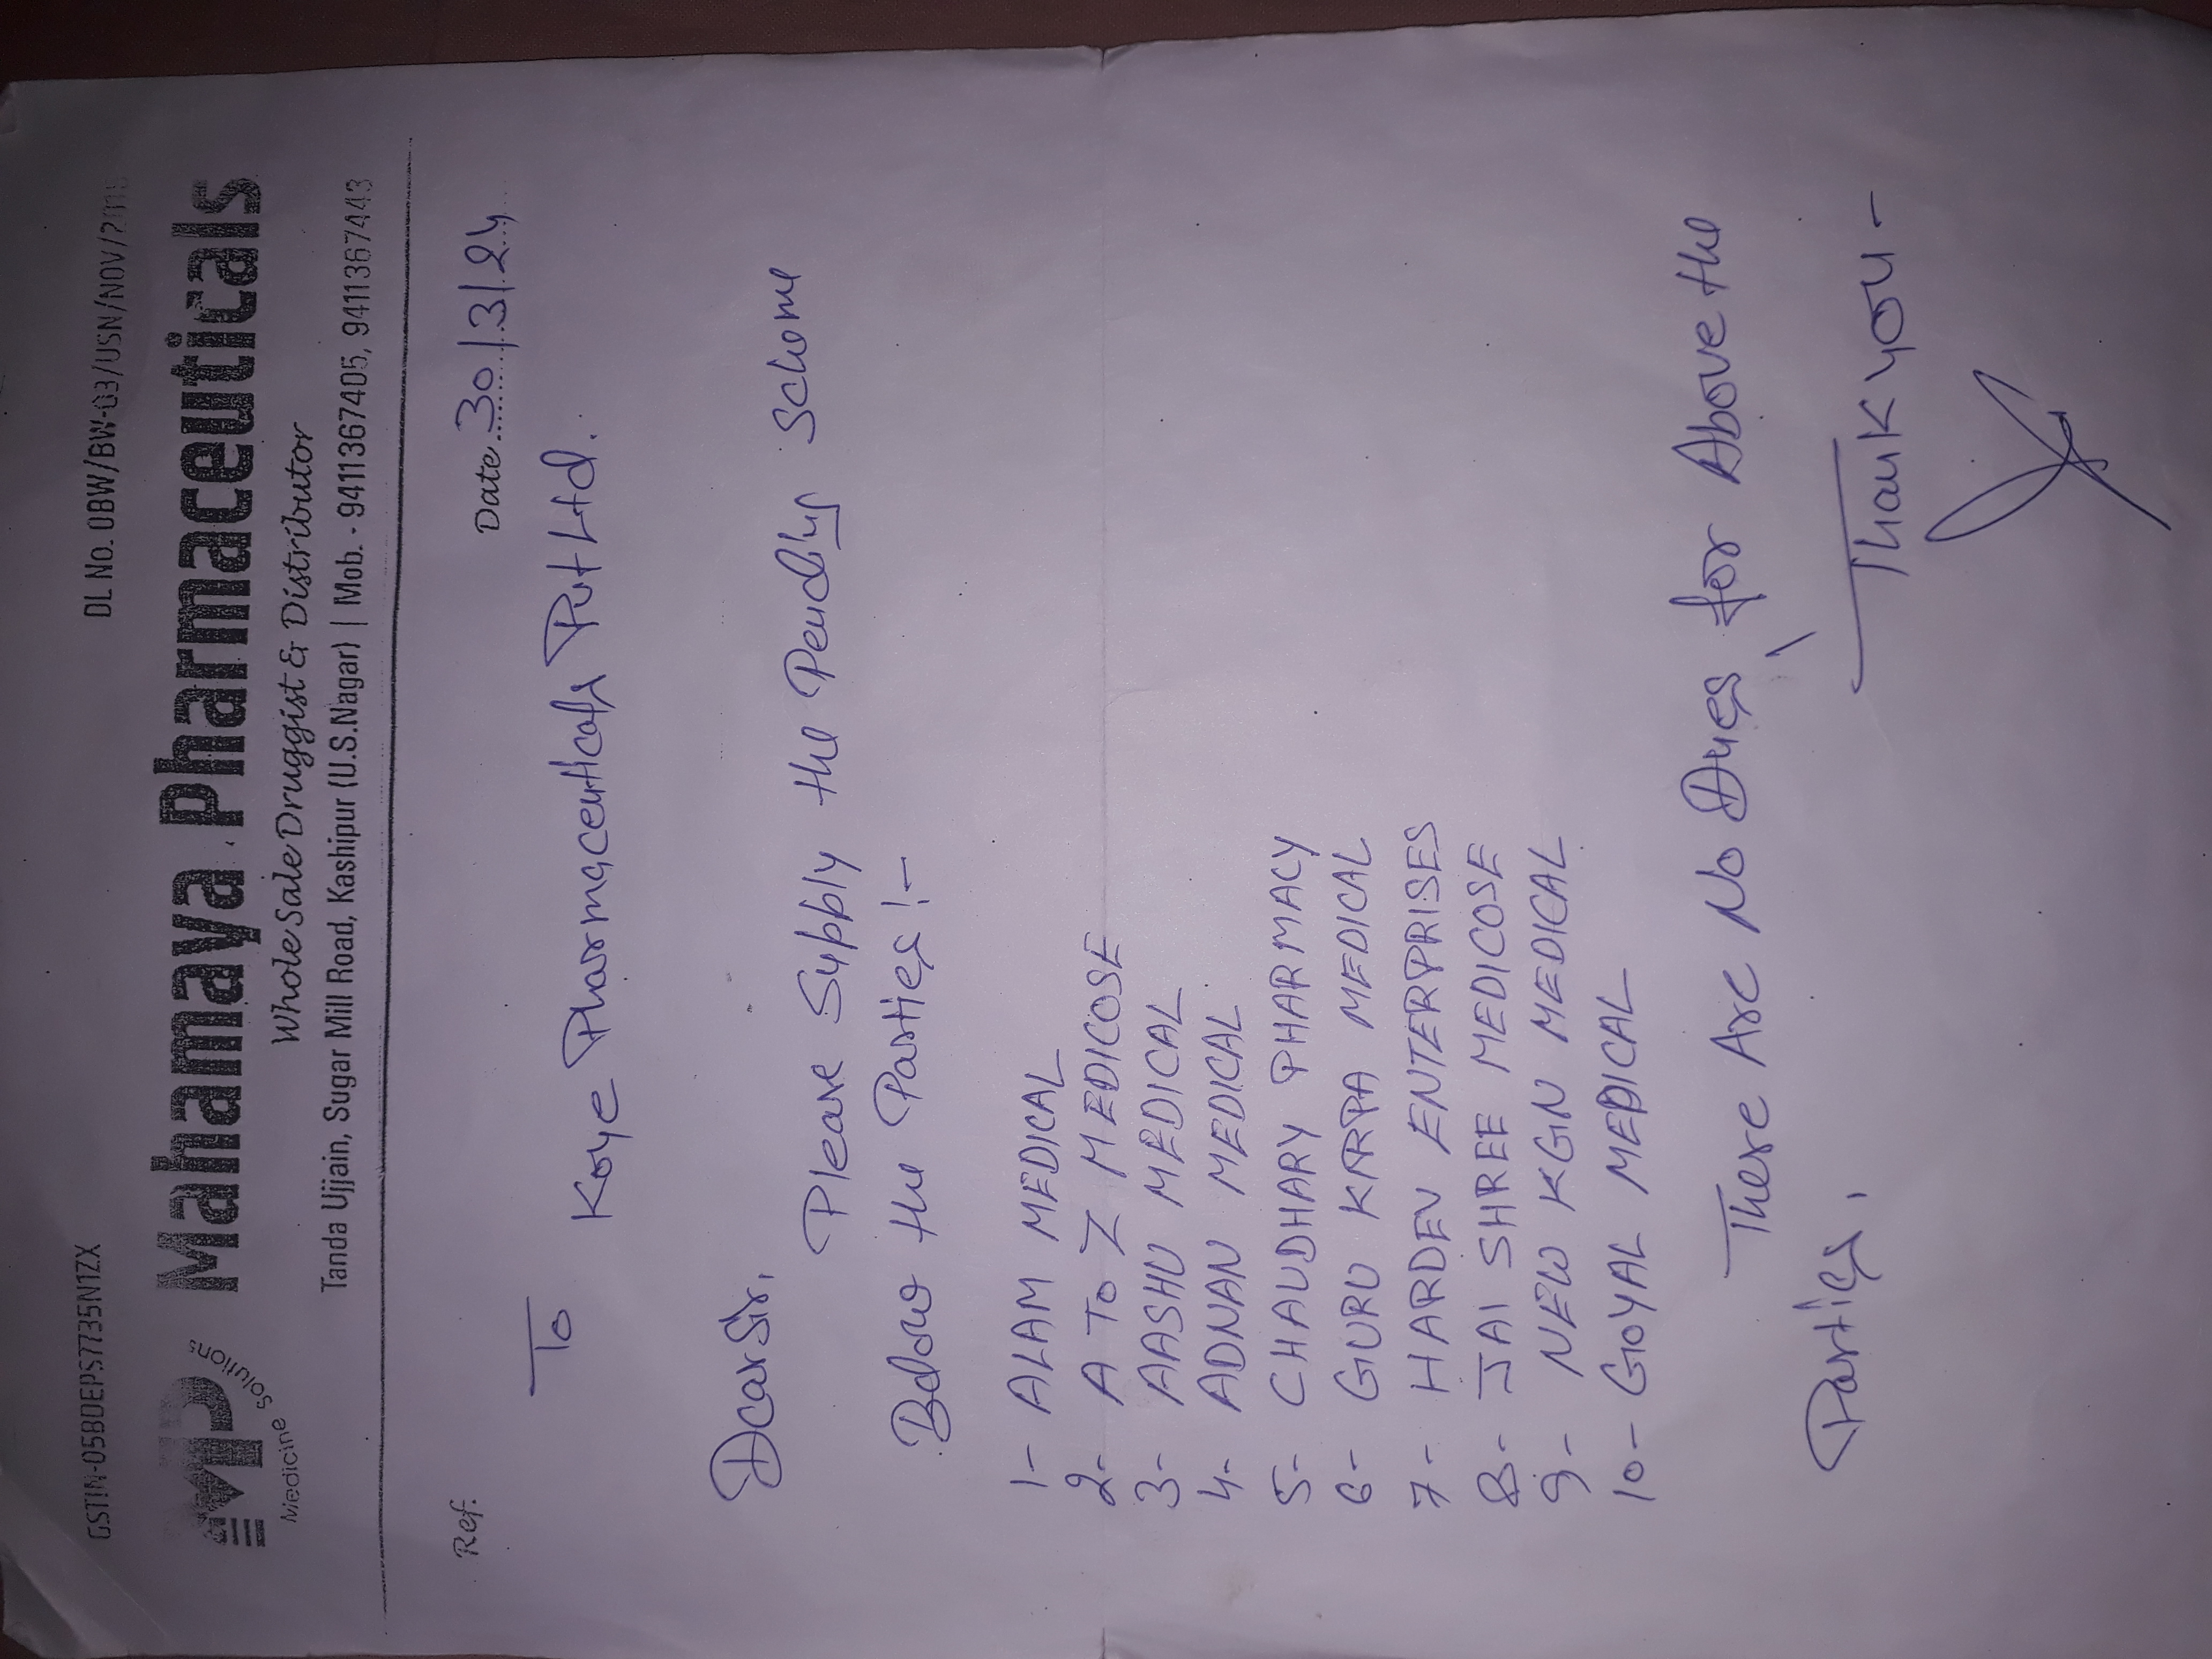 GSTIN-05BDEPS7735N1ZX DL No. OBW/BW-03/USN/NOV/
MP Mahamaya Pharmaceuticals
Medicine Solutions
Whole Sale Druggist & Distributor
Tanda Ujjain, Sugar Mill Road, Kashipur (U.S.Nagar) | Mob. - 9411367405, 9411367443
Ref. Date 30/3/24
To
Koye Pharmaceuticals Pvt Ltd.
Dear Sir,
Please Supply the Pending Scheme
Below the Parties!-
1- ALAM MEDICAL
2- A TO Z MEDICOSE
3- AASHU MEDICAL
4- ADNAN MEDICAL
5- CHAUDHARY PHARMACY
6- GURU KARPA MEDICAL
7- HARDEV ENTERPRISES
8- JAI SHREE MEDICOSE
9- NEW KGN MEDICAL
10- GOYAL MEDICAL
There Are No Dues for Above the
Parties,
Thank you -